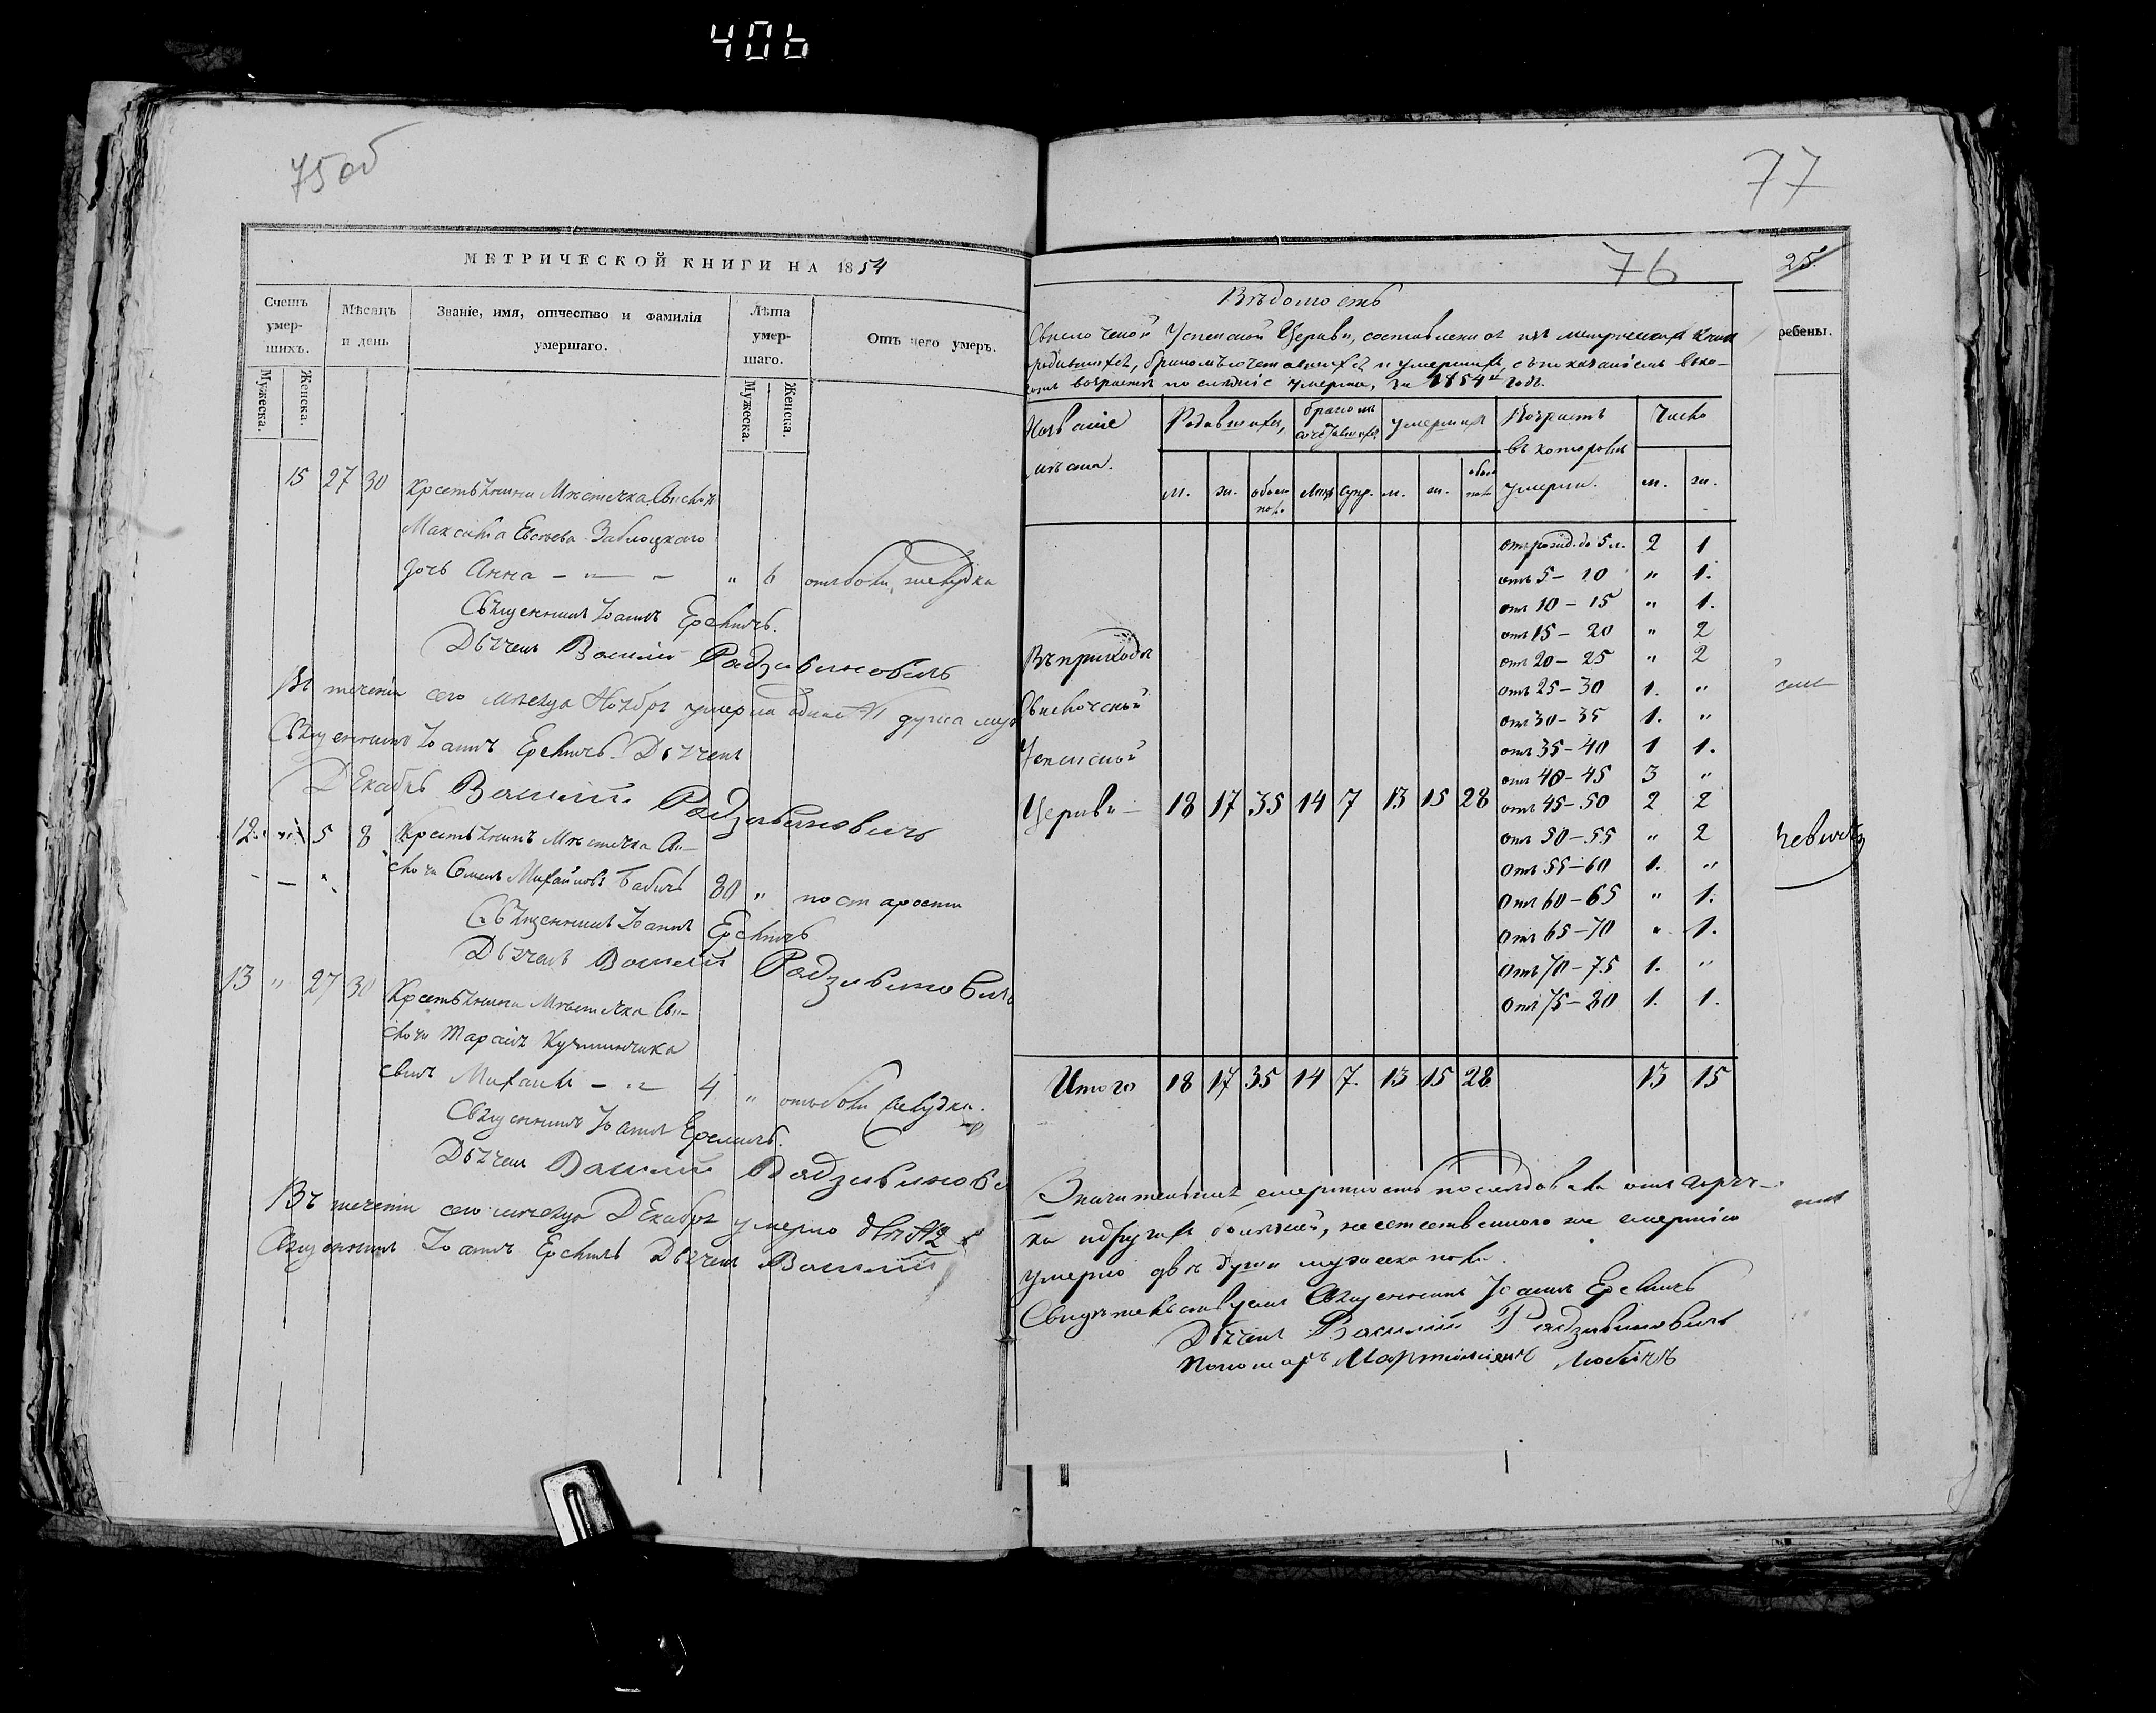 406
75 об
МЕТРИЧЕСКОЙ КНИГИ НА 1854
Счетъ умер-шихъ.
Мѣсяцъ и день
Званіе, имя, отчество и фамилія умершаго.
Лѣта умер-шаго.
Отъ чего умеръ.
Мужеска.
Женска.
Мужеска.
Женска.
15 27 30 Крестьянина Мѣстечка
Максима Заблоцкаго
дочь Анна — " — " 6 отъ боли желудка
Священникъ Іоаннъ
Дьячекъ Василій Радзивиновичь
Въ теченіи сего мѣсяца Ноября умерла одна №1 душа
Священникъ Іоаннъ Дьячекъ
Декабрь Василій Радзивиновичь
12. 5 8 Крестьянинъ Мѣстечка Сви-
Семенъ Михайловъ Бабичь 80 " по старости
Священникъ Іоаннъ
Дьячекъ Василій Радзивиновичь
13 " 27 30 Крестьянина Мѣстечка Сви-
Тарасія Кучминчика
сынъ Михаилъ — " — 4 " отъ боли желудка.
Священникъ Іоаннъ
Дьячекъ Василій Радзивинови
Въ теченіи сего мѣсяца Декабря умерло двѣ №2
Священникъ Іоаннъ Дьячекъ Василій
77
76
25
ребены.
Вѣдомость
Успенской Церкви, составленная изъ метрическихъ книгъ
родившихся, бракомъ сочетавшихся и умершихъ, съ показаніемъ въ ко-
возрастѣ послѣдніе умерли, за 1854 годъ.
Названіе мѣста.
Родившихся,
бракомъ сочетавшихся
умершихъ
Возрастъ въ которомъ умерли.
Число
м. ж. обоего пола Лицъ Супр. м. ж. обоего пола м. ж.
отъ рожд. до 5 л. 2 1
отъ 5 – 10 " 1.
отъ 10 – 15 " 1.
отъ 15 – 20 " 2
отъ 20 – 25 " 2
отъ 25 – 30 1. "
отъ 30 – 35 1. "
отъ 35 – 40 1 1.
отъ 40 – 45 3 "
Въ приходѣ
Успенской
Церкви — 18 17 35 14 7 13 15 28 отъ 45 – 50 2 2
отъ 50 – 55 " 2
отъ 55 – 60 1. "
отъ 60 – 65 " 1.
отъ 65 – 70 " 1.
отъ 70 – 75 1. "
отъ 75 – 80 1. 1.
Итого 18 17 35 14 7. 13 15 28 13 15
Значительная смертность послѣдовала отъ горяч-
ки и другихъ болѣзней, неестественною же смертію
умерло двѣ души мужеска пола.
Священникъ Іоаннъ
Дьячекъ Василій Радзивиновичь
Пономарь